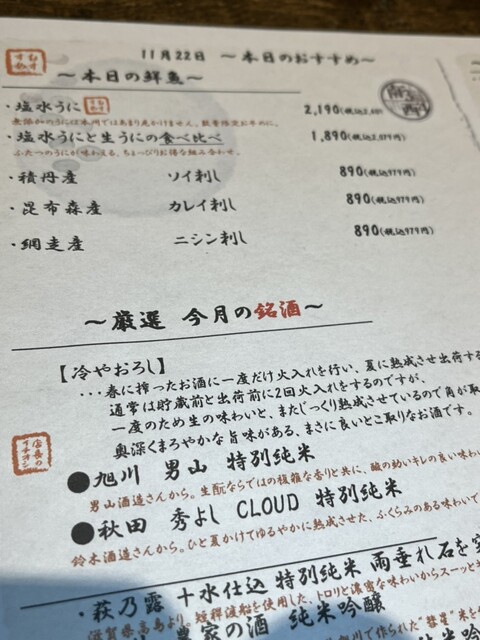 11月22日 ～本日のおすすめ～
～本日の鮮魚～
・塩水うに 2,190(税込2,409
無添加のうには本州ではあまり見かけません。数量限定お早めに。
・塩水うにと生うにの食べ比べ 1,890(税込2,079円)
ふたつのうにが味わえる、ちょっぴりお得な組み合わせ。
・積丹産 ソイ刺し 890(税込979円)
・昆布森産 カレイ刺し 890(税込979円)
・網走産 ニシン刺し 890(税込979円)
～厳選 今月の銘酒～
【冷やおろし】
・・・春に搾ったお酒に一度だけ火入れを行い、夏に熟成させ出荷する
通常は貯蔵前と出荷前に2回火入れをするのですが、
一度のため生の味わいと、またじっくり熟成させているので角が取
奥深くまろやかな旨味がある、まさに良いとこ取りなお酒です。
店長のイチオシ
●旭川 男山 特別純米
男山酒造さんから。生酛ならではの複雑な香りと共に、酸の効いキレの良い味わい
●秋田 秀よし CLOUD 特別純米
鈴木酒造さんから。ひと夏かけてゆるやかに熟成された、ふくらみのある味わいで
・萩乃露 十水仕込 特別純米 雨垂れ石を
滋賀県高島より。短稈渡船を使用した、トロリと濃密な味わいからスーッと
農家の酒 純米吟醸